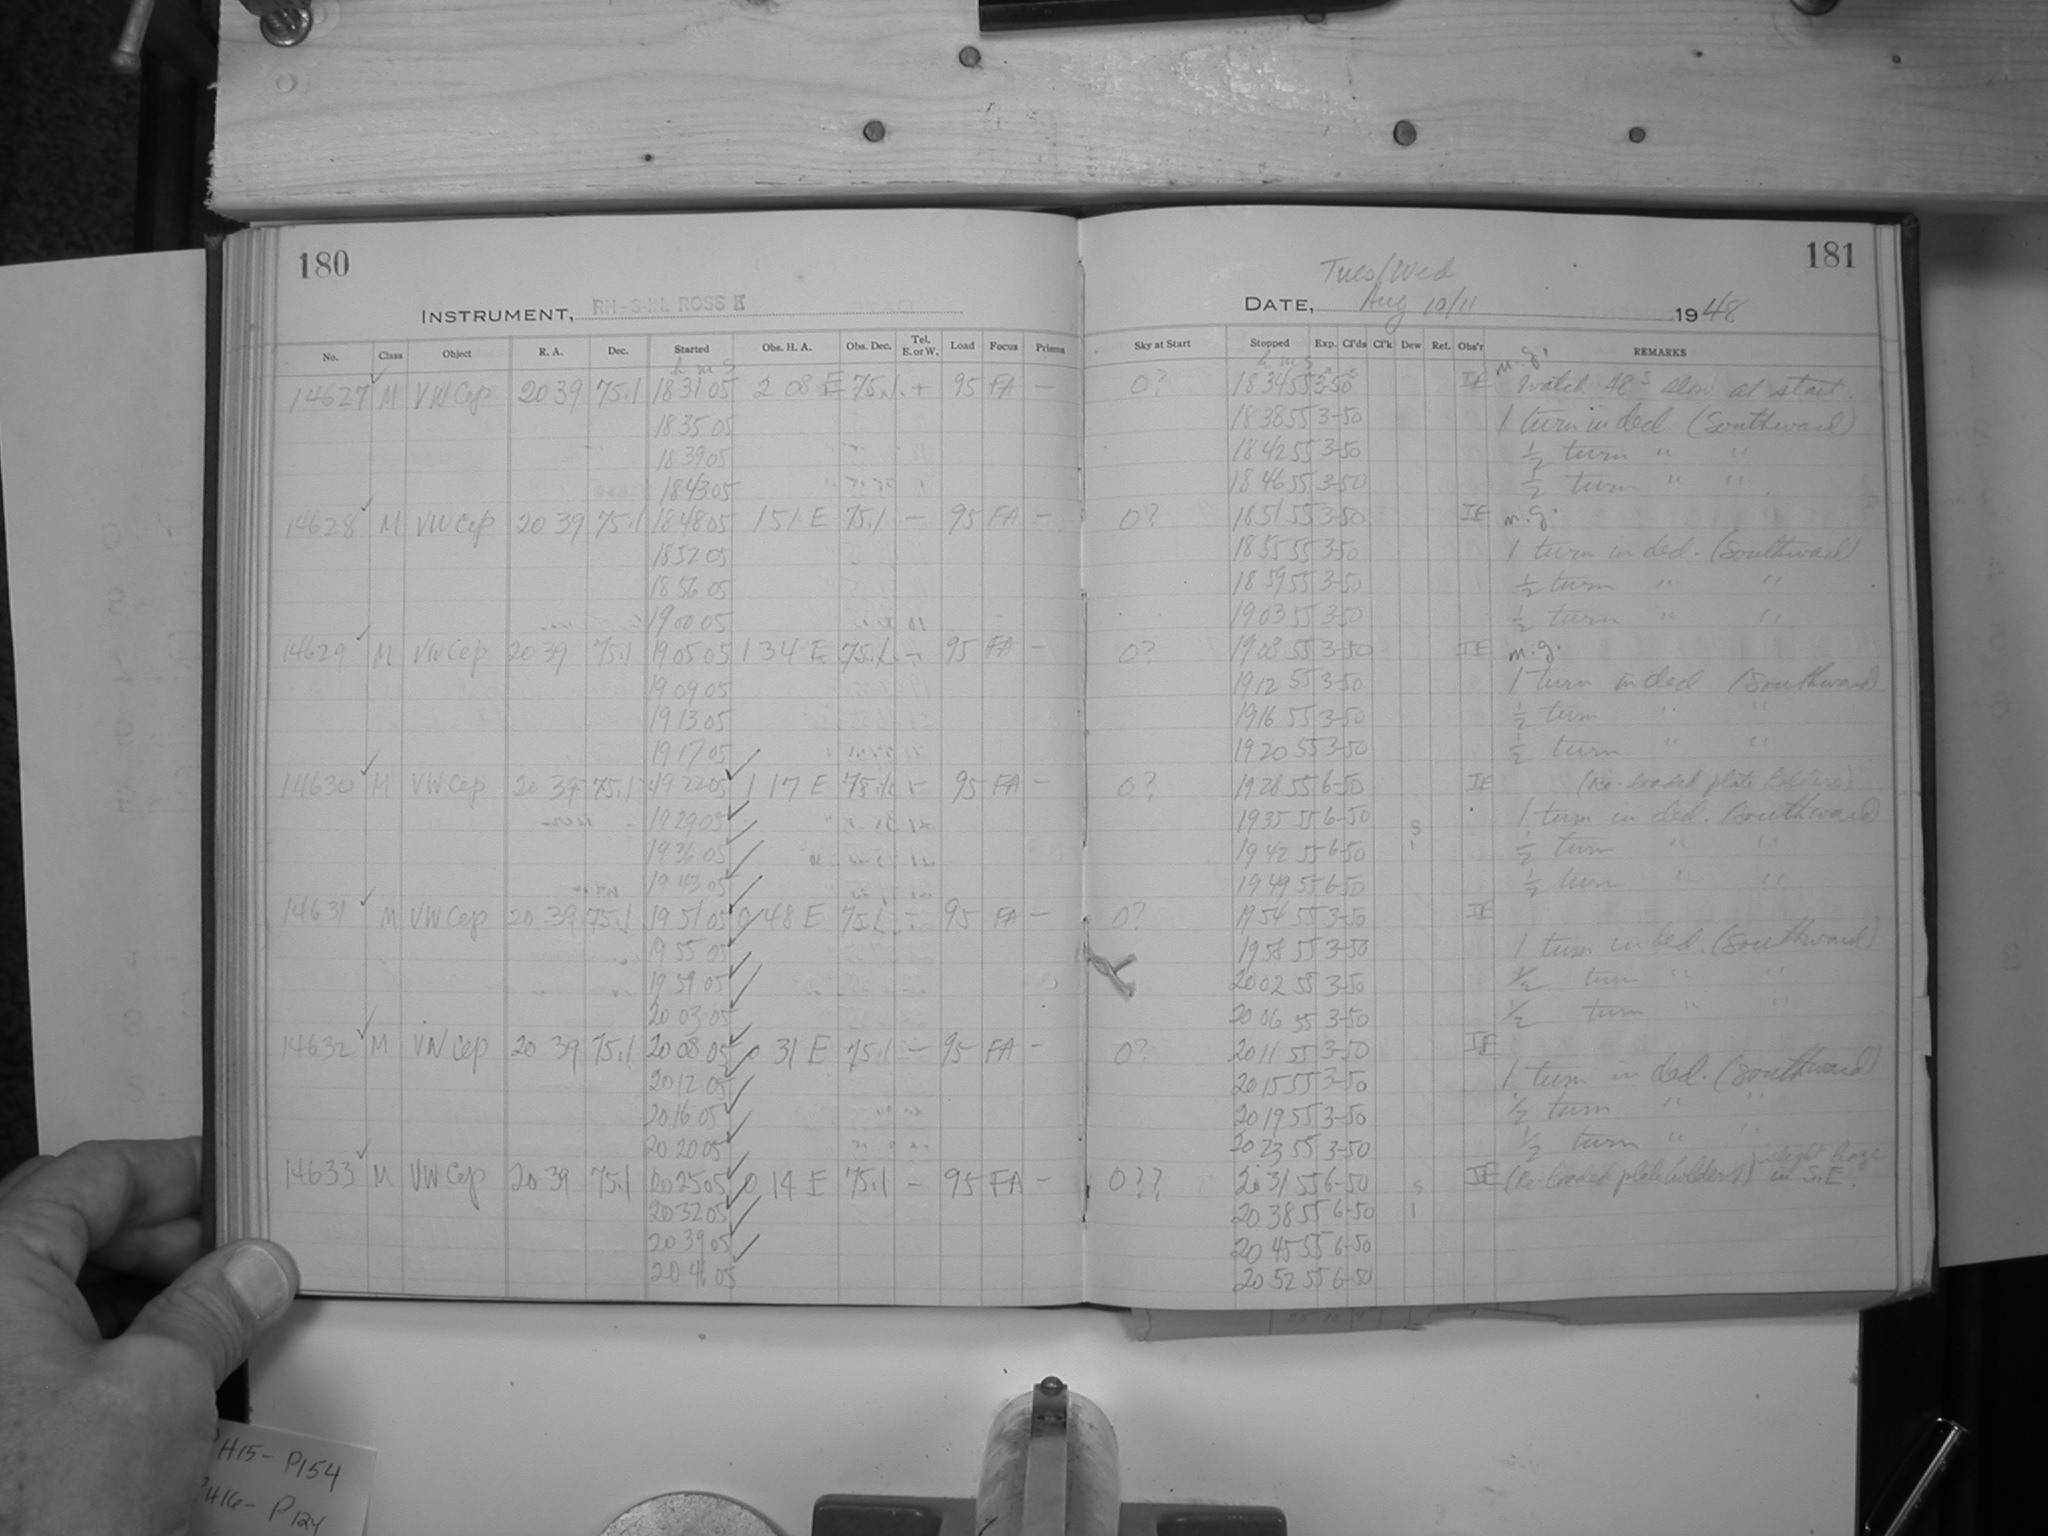 180
INSTRUMENT, RH-3-IN. ROSS
No. Class Object R. A. Dec. Started Obs. H. A. Obs. Dec. Tel. E. or W. Load Focus Prisms
h m s
14627 M VW Cep 20 39 75.1 18 31 05 2 08 E 75.1 + 95 FA —
18 35 05
18 39 05
18 43 05
14628 M VW Cep 20 39 75.1 18 48 05 1 51 E 75.1 — 95 FA —
18 52 05
18 56 05
19 00 05
14629 M VW Cep 20 39 75.1 19 05 05 1 34 E 75.1 95 FA —
19 09 05
19 13 05
19 17 05
14630 M VW Cep 20 39 75.1 19 22 05 1 17 E 75.1 95 FA —
19 29 05
19 36 05
19 43 05
14631 M VW Cep 20 39 75.1 19 51 05 0 48 E 75.1 95 FA —
19 55 05
19 59 05
20 03 05
14632 M VW Cep 20 39 75.1 20 08 05 0 31 E 75.1 — 95 FA —
20 12 05
20 16 05
20 20 05
14633 M VW Cep 20 39 75.1 20 25 05 0 14 E 75.1 — 95 FA —
20 32 05
20 39 05
20 46 05
181
Tues/Wed
DATE, Aug 10/11 1948
Sky at Start Stopped Exp. Cl'ds Cl'k Dew Ref. Obs'r REMARKS
h m s m.g.
0? 18 34 55 3-50 IE Watch 48s slow at start.
18 38 55 3-50 1 turn in decl. (Southward)
18 42 55 3-50 1/2 turn " "
18 46 55 3-50 1/2 turn " "
0? 18 51 55 3-50 IE m.g.
18 55 55 3-50 1 turn in decl. (Southward)
18 59 55 3-50 1/2 turn " "
19 03 55 3-50 1/2 turn " "
0? 19 08 55 3-50 IE m.g.
19 12 55 3-50 1 turn in decl (Southward)
19 16 55 3-50 1/2 turn " "
19 20 55 3-50 1/2 turn " "
0? 19 28 55 6-50 IE (Re-loaded plate holders)
19 35 55 6-50 1 turn in decl. (Southward)
19 42 55 6-50 1/2 turn " "
19 49 55 6-50 1/2 turn " "
0? 19 54 55 3-50 IE
19 58 55 3-50 1 turn in decl. (Southward)
20 02 55 3-50 1/2 turn " "
20 06 55 3-50 1/2 turn " "
0? 20 11 55 3-50 IE
20 15 55 3-50 1 turn in decl. (Southward)
20 19 55 3-50 1/2 turn " "
20 23 55 3-50 1/2 turn " "
0?? 20 31 55 6-50 IE (Re-loaded plateholders) slight haze in S.E.
20 38 55 6-50
20 45 55 6-50
20 52 55 6-50
H15- P154
H16- P124